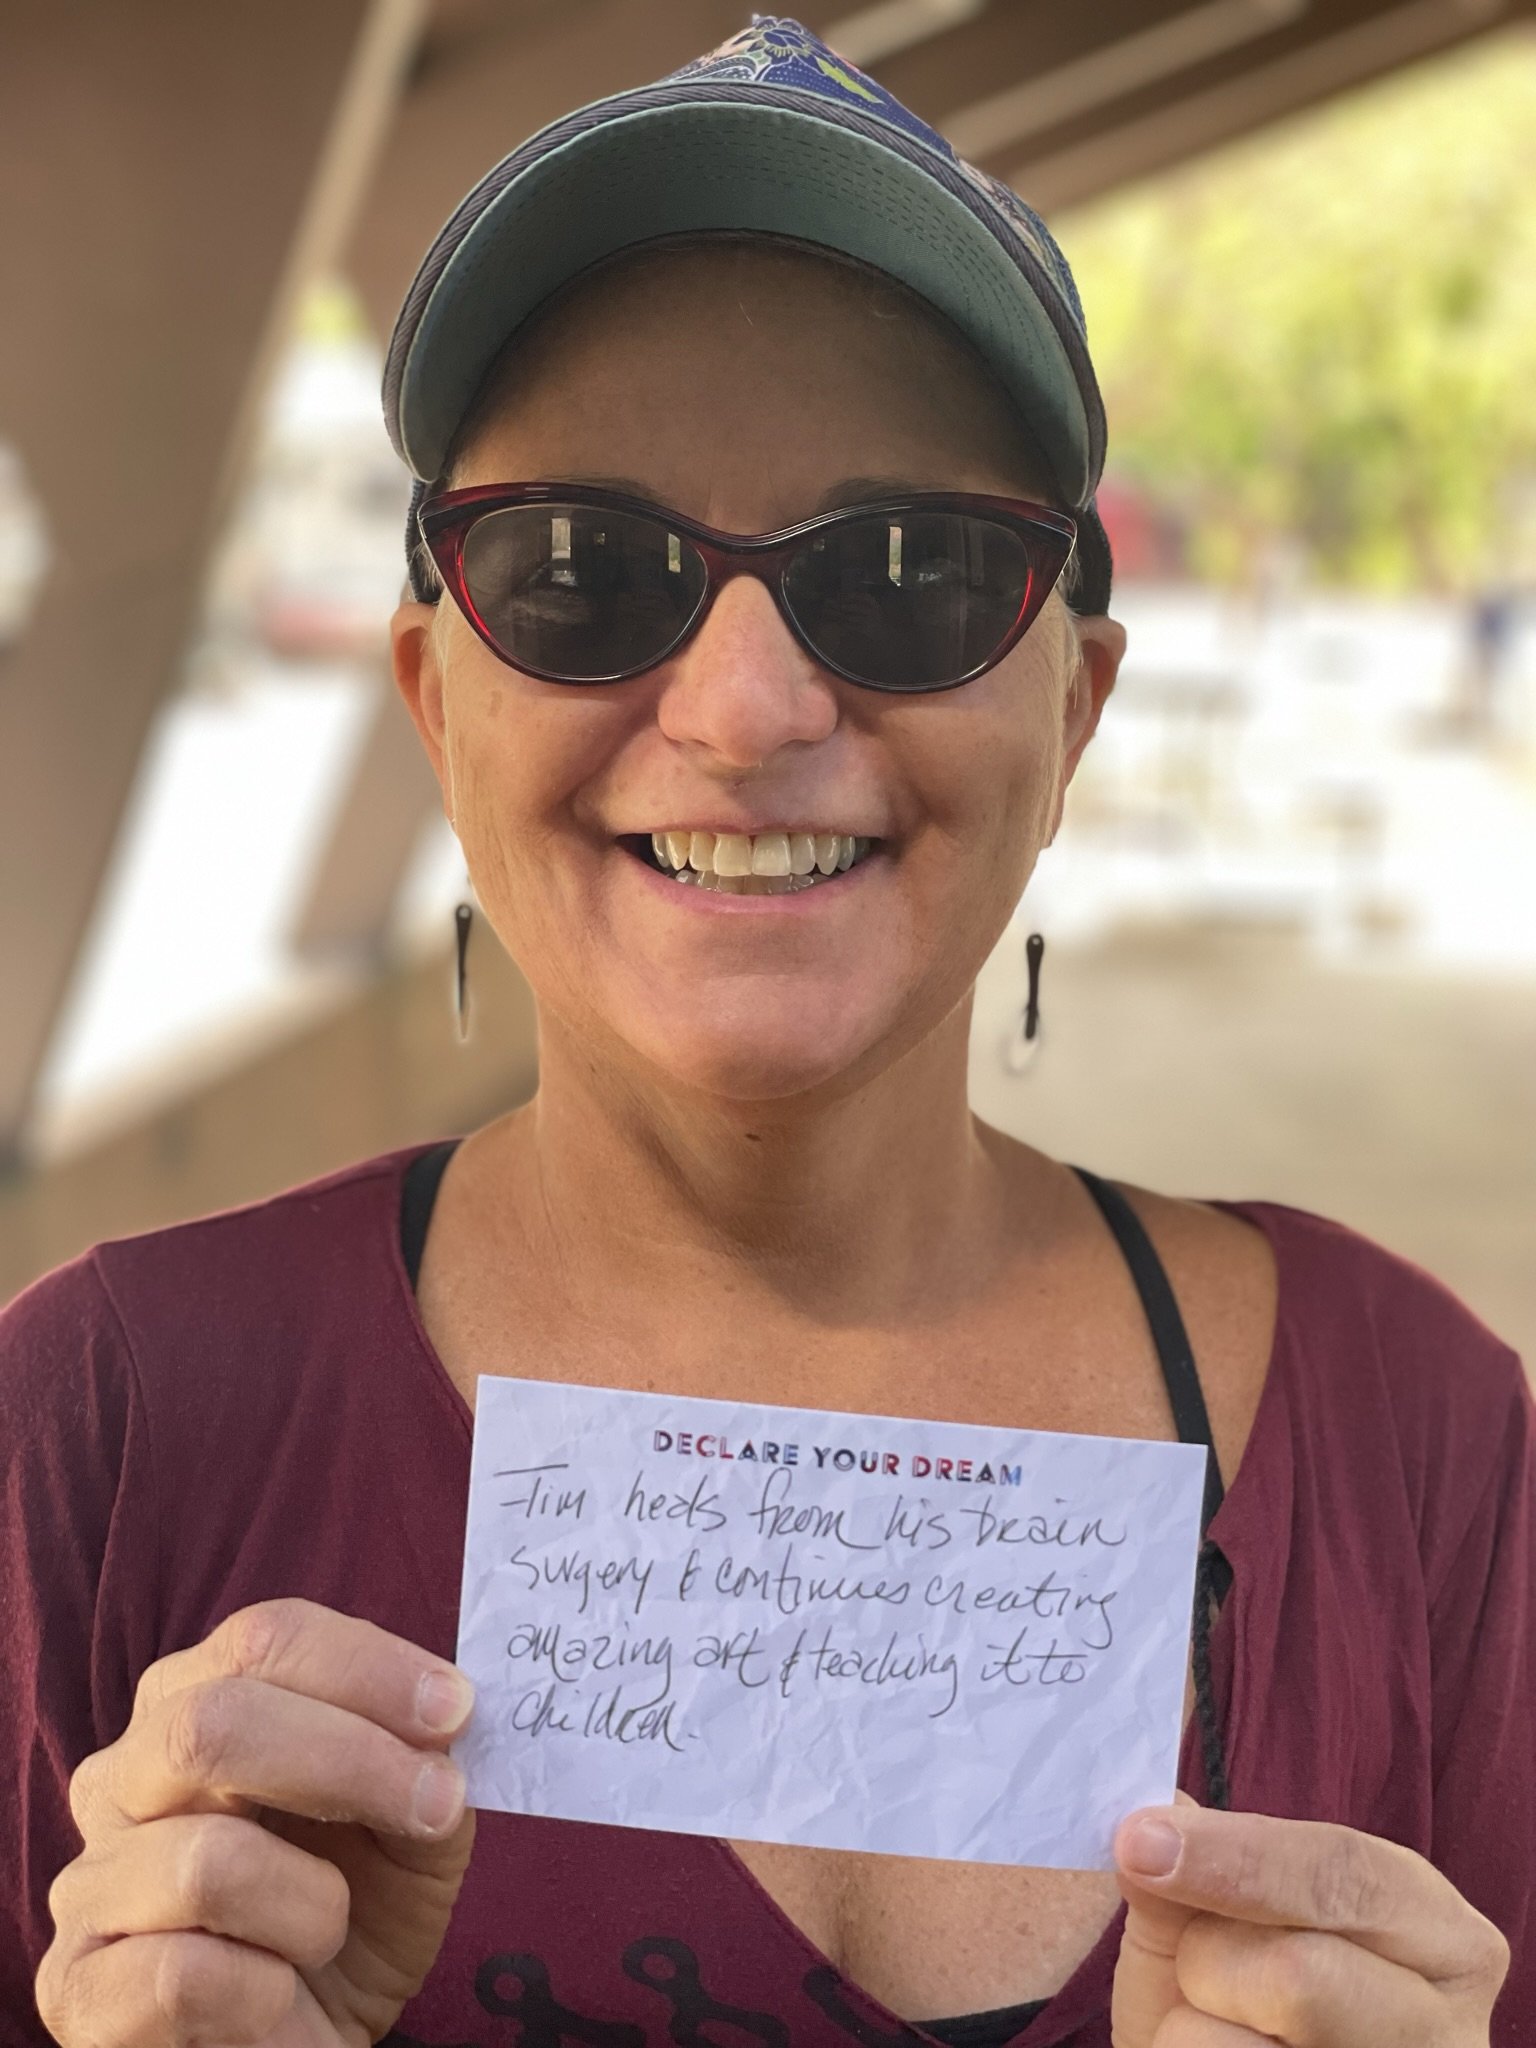 DECLARE YOUR DREAM
Tim heals from his brain
surgery & continues creating
amazing art & teaching it to
children.